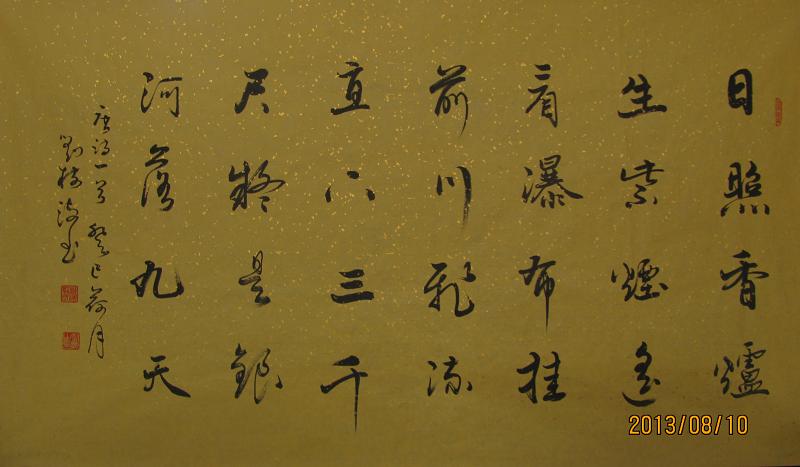 日照香爐
生紫煙遙
看瀑布挂
前川飛流
直下三千
尺疑是銀
河落九天
唐詩一首 癸巳荷月
劉 书
2013/08/10